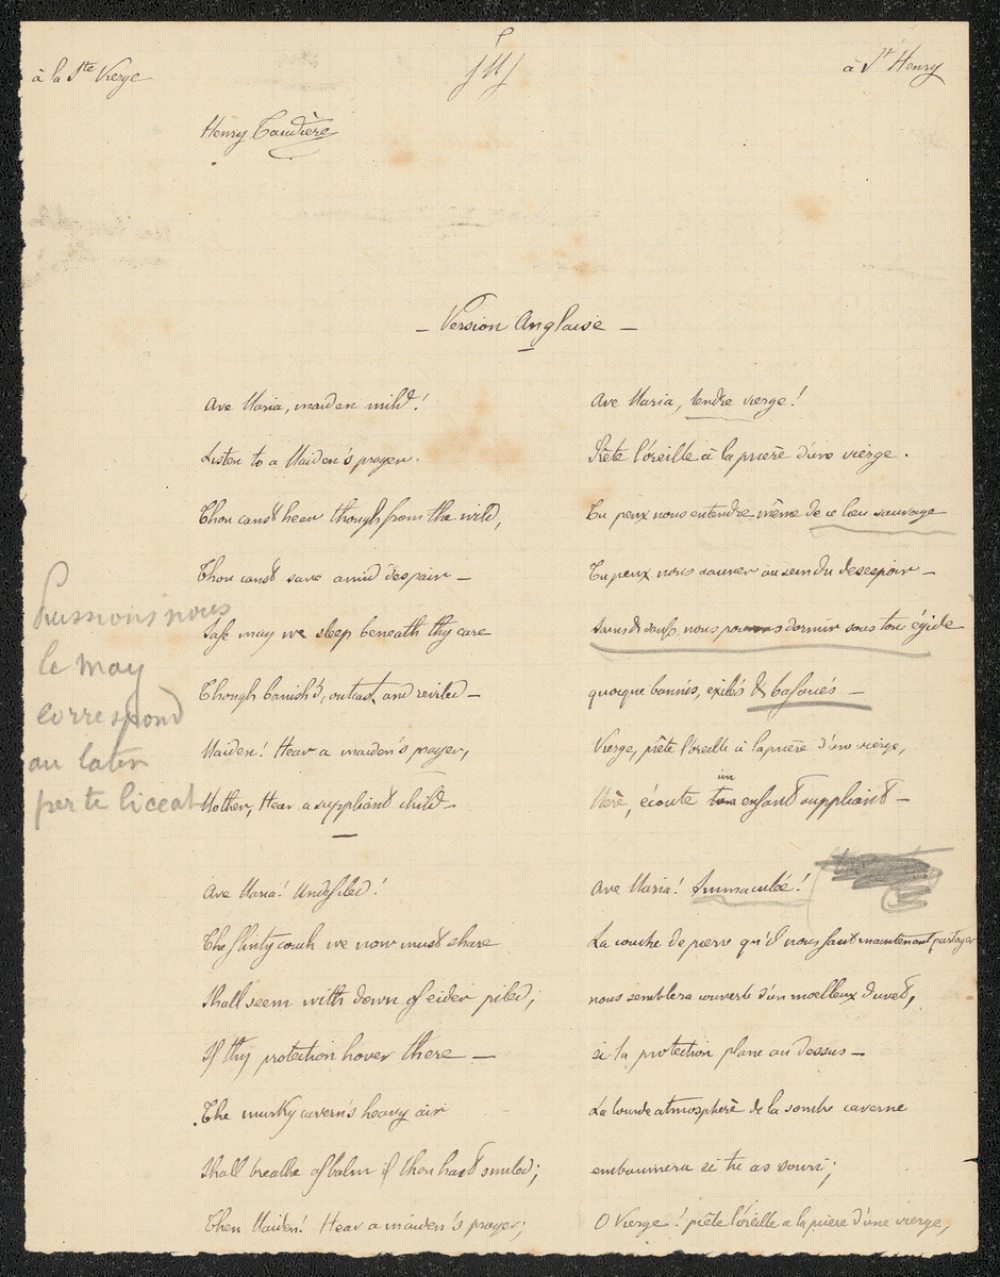 à la Ste Vierge
à St Henry
Henry Taudière
- Version Anglaise -
Ave Maria, maiden mild!
Listen to a Maiden's prayer.
Thou canst hear though from the wild,
Thou canst save amid despair -
Safe may we sleep beneath thy care
Though banish'd, outcast, and reviled -
Maiden! Hear a maiden's prayer,
Mother, Hear a suppliant child.
Ave Maria! Undefiled!
The flinty couch we now must share
Shall seem with down of eider piled;
If thy protection hover there -
The murky cavern's heavy air
Shall breathe of balm if thou hast smiled;
Then Maiden! Hear a maiden's prayer;
Ave Maria, tendre vierge!
Prête l'oreille à la prière d'une vierge.
Tu peux nous entendre même de ce lieu sauvage
Tu peux nous sauver au sein du desespoir -
Sains & saufs, nous pouvons dormir sous ton égide
quoique bannis, exilés & bafoués -
Vierge, prête l'oreille à la prière d'une vierge,
un
Mère, écoute ton enfant suppliant -
Ave Maria! Immaculée!
La couche de pierre qu'il nous faut maintenant partager
nous semblera couverte d'un moelleux duvet,
si ta protection plane au dessus -
La lourde atmosphère de la sombre caverne
embaumera si tu as souri;
O Vierge! prête l'oreille a la prière d'une vierge,
Puissions nous
le may
correspond
au latin
per te liceat